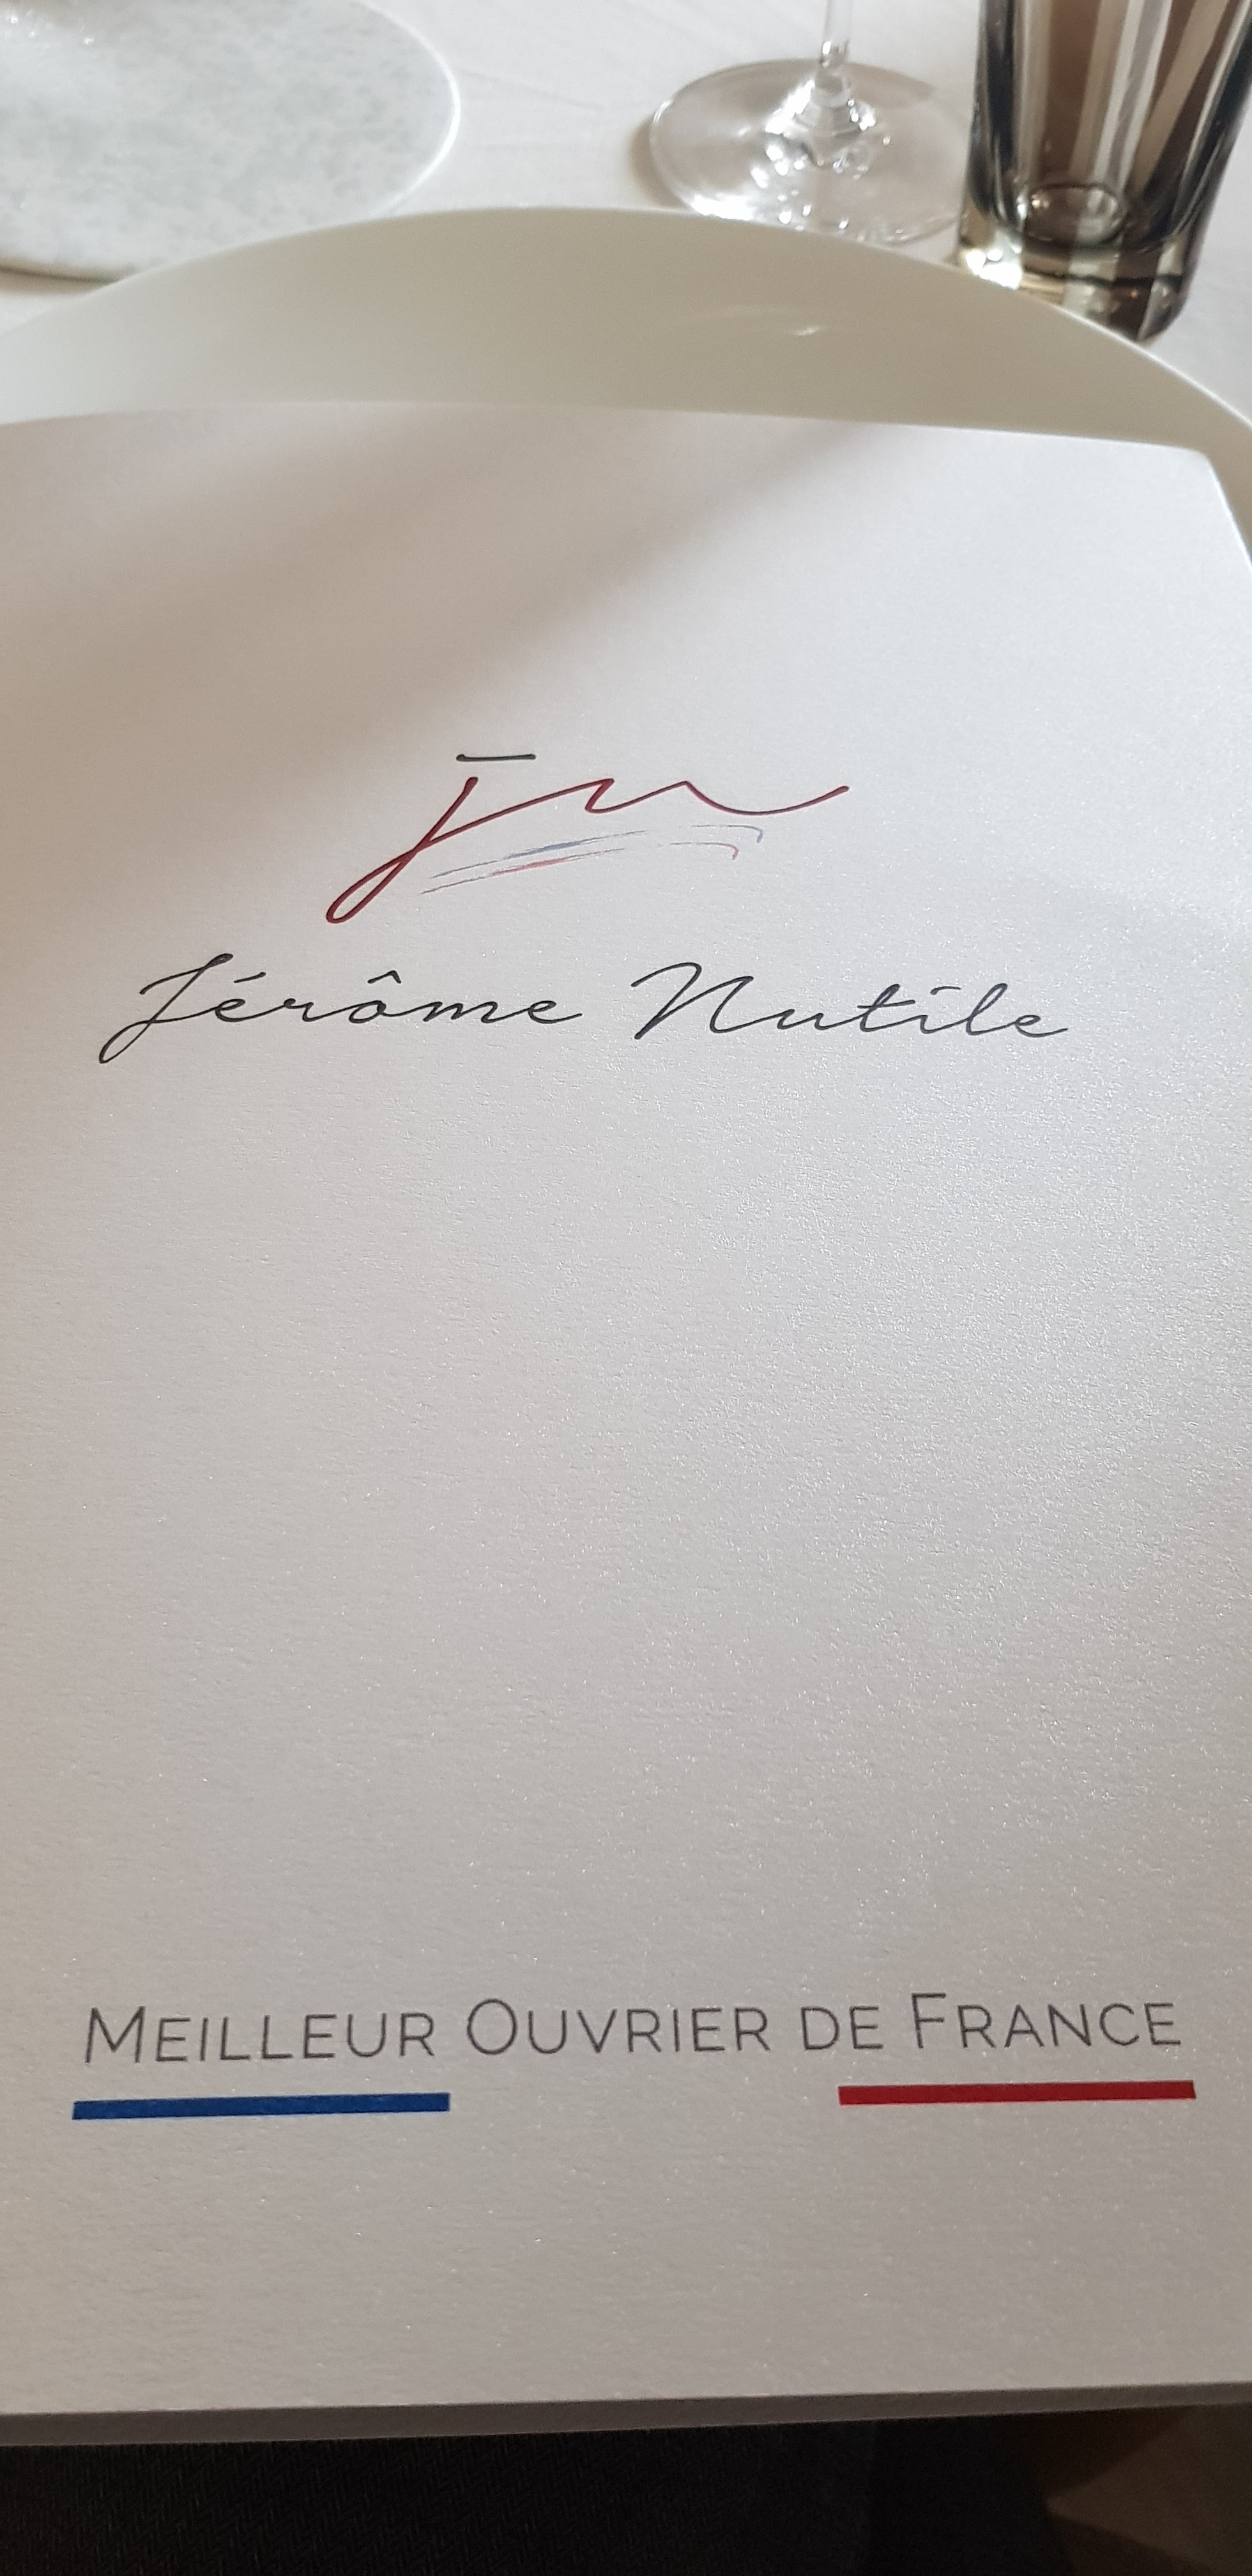 jn
Jérôme Nutile
MEILLEUR OUVRIER DE FRANCE